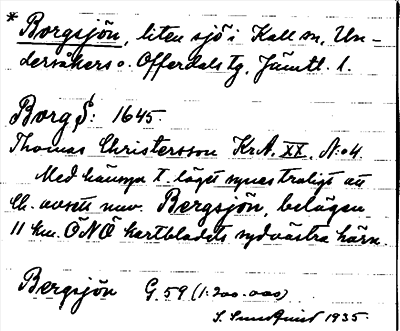 * Borgsjön, liten sjö i Kall sn, Un-
dersåkers o. Offerdals tg, Jämtl. l.
Borg S: 1645.
Thomas Christersson Kr.A. XX. N:o 4
Med hänsyn t. läget synes troligt att
Ch. avsett nuv. Bergsjön, belägen
11 km. ÖNÖ kartbladets sydvästra hörn.
Bergsjön G. 59 (1:200.000)
S. Sundquist 1935.